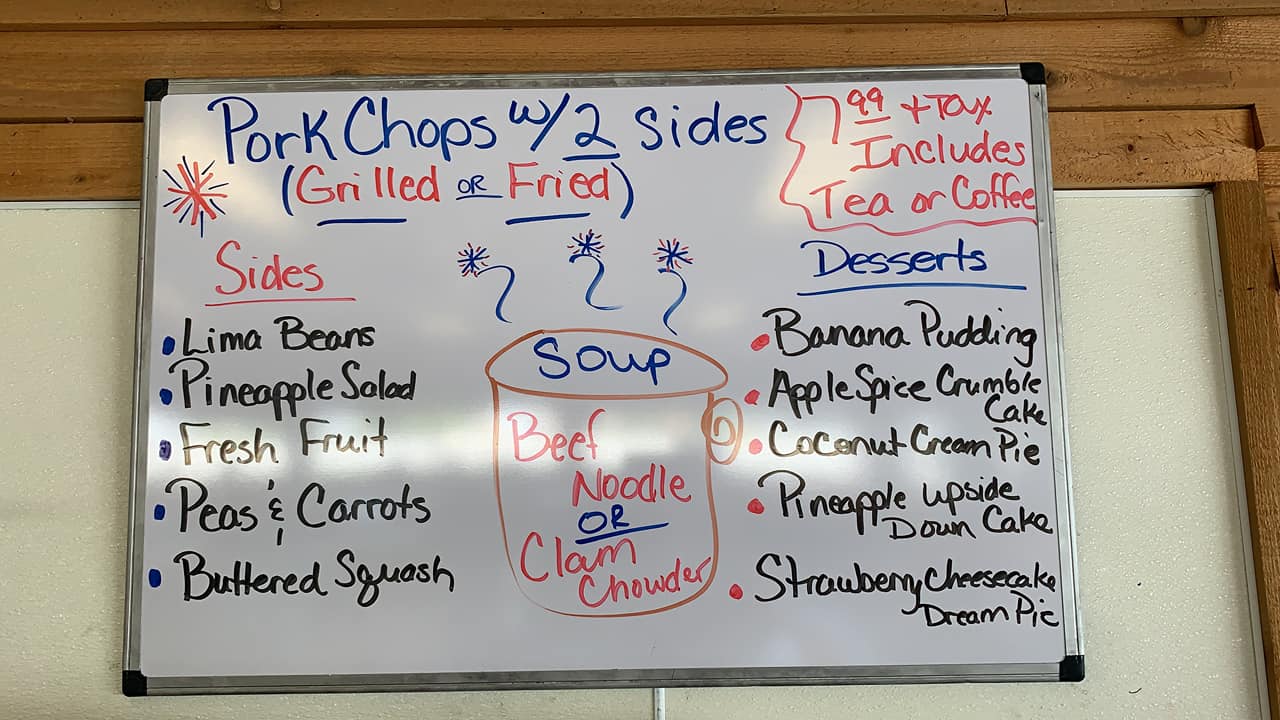 Pork Chops w/ 2 sides
(Grilled OR Fried)
7 99 + Tax
Includes
Tea or Coffee
Sides
• Lima Beans
• Pineapple Salad
• Fresh Fruit
• Peas & Carrots
• Buttered Squash
Soup
Beef
Noodle
OR
Clam
Chowder
Desserts
• Banana Pudding
• Apple Spice Crumble
Cake
• Coconut Cream Pie
• Pineapple Upside
Down Cake
• Strawberry Cheesecake
Dream Pie